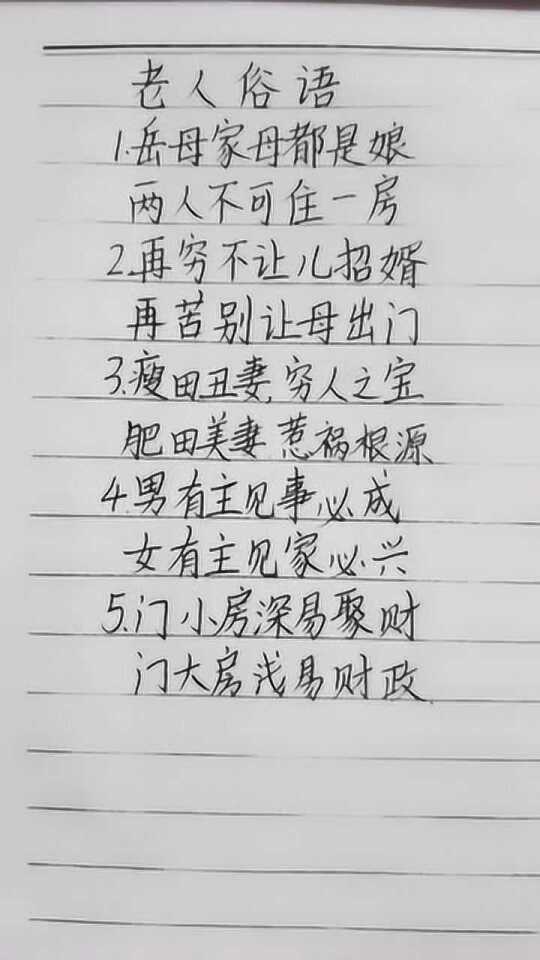 老人俗语
1.岳母家母都是娘
两人不可住一房
2.再穷不让儿招婿
再苦别让母出门
3.瘦田丑妻,穷人之宝
肥田美妻惹祸根源
4.男有主见事必成
女有主见家必兴
5.门小房深易聚财
门大房浅易财政